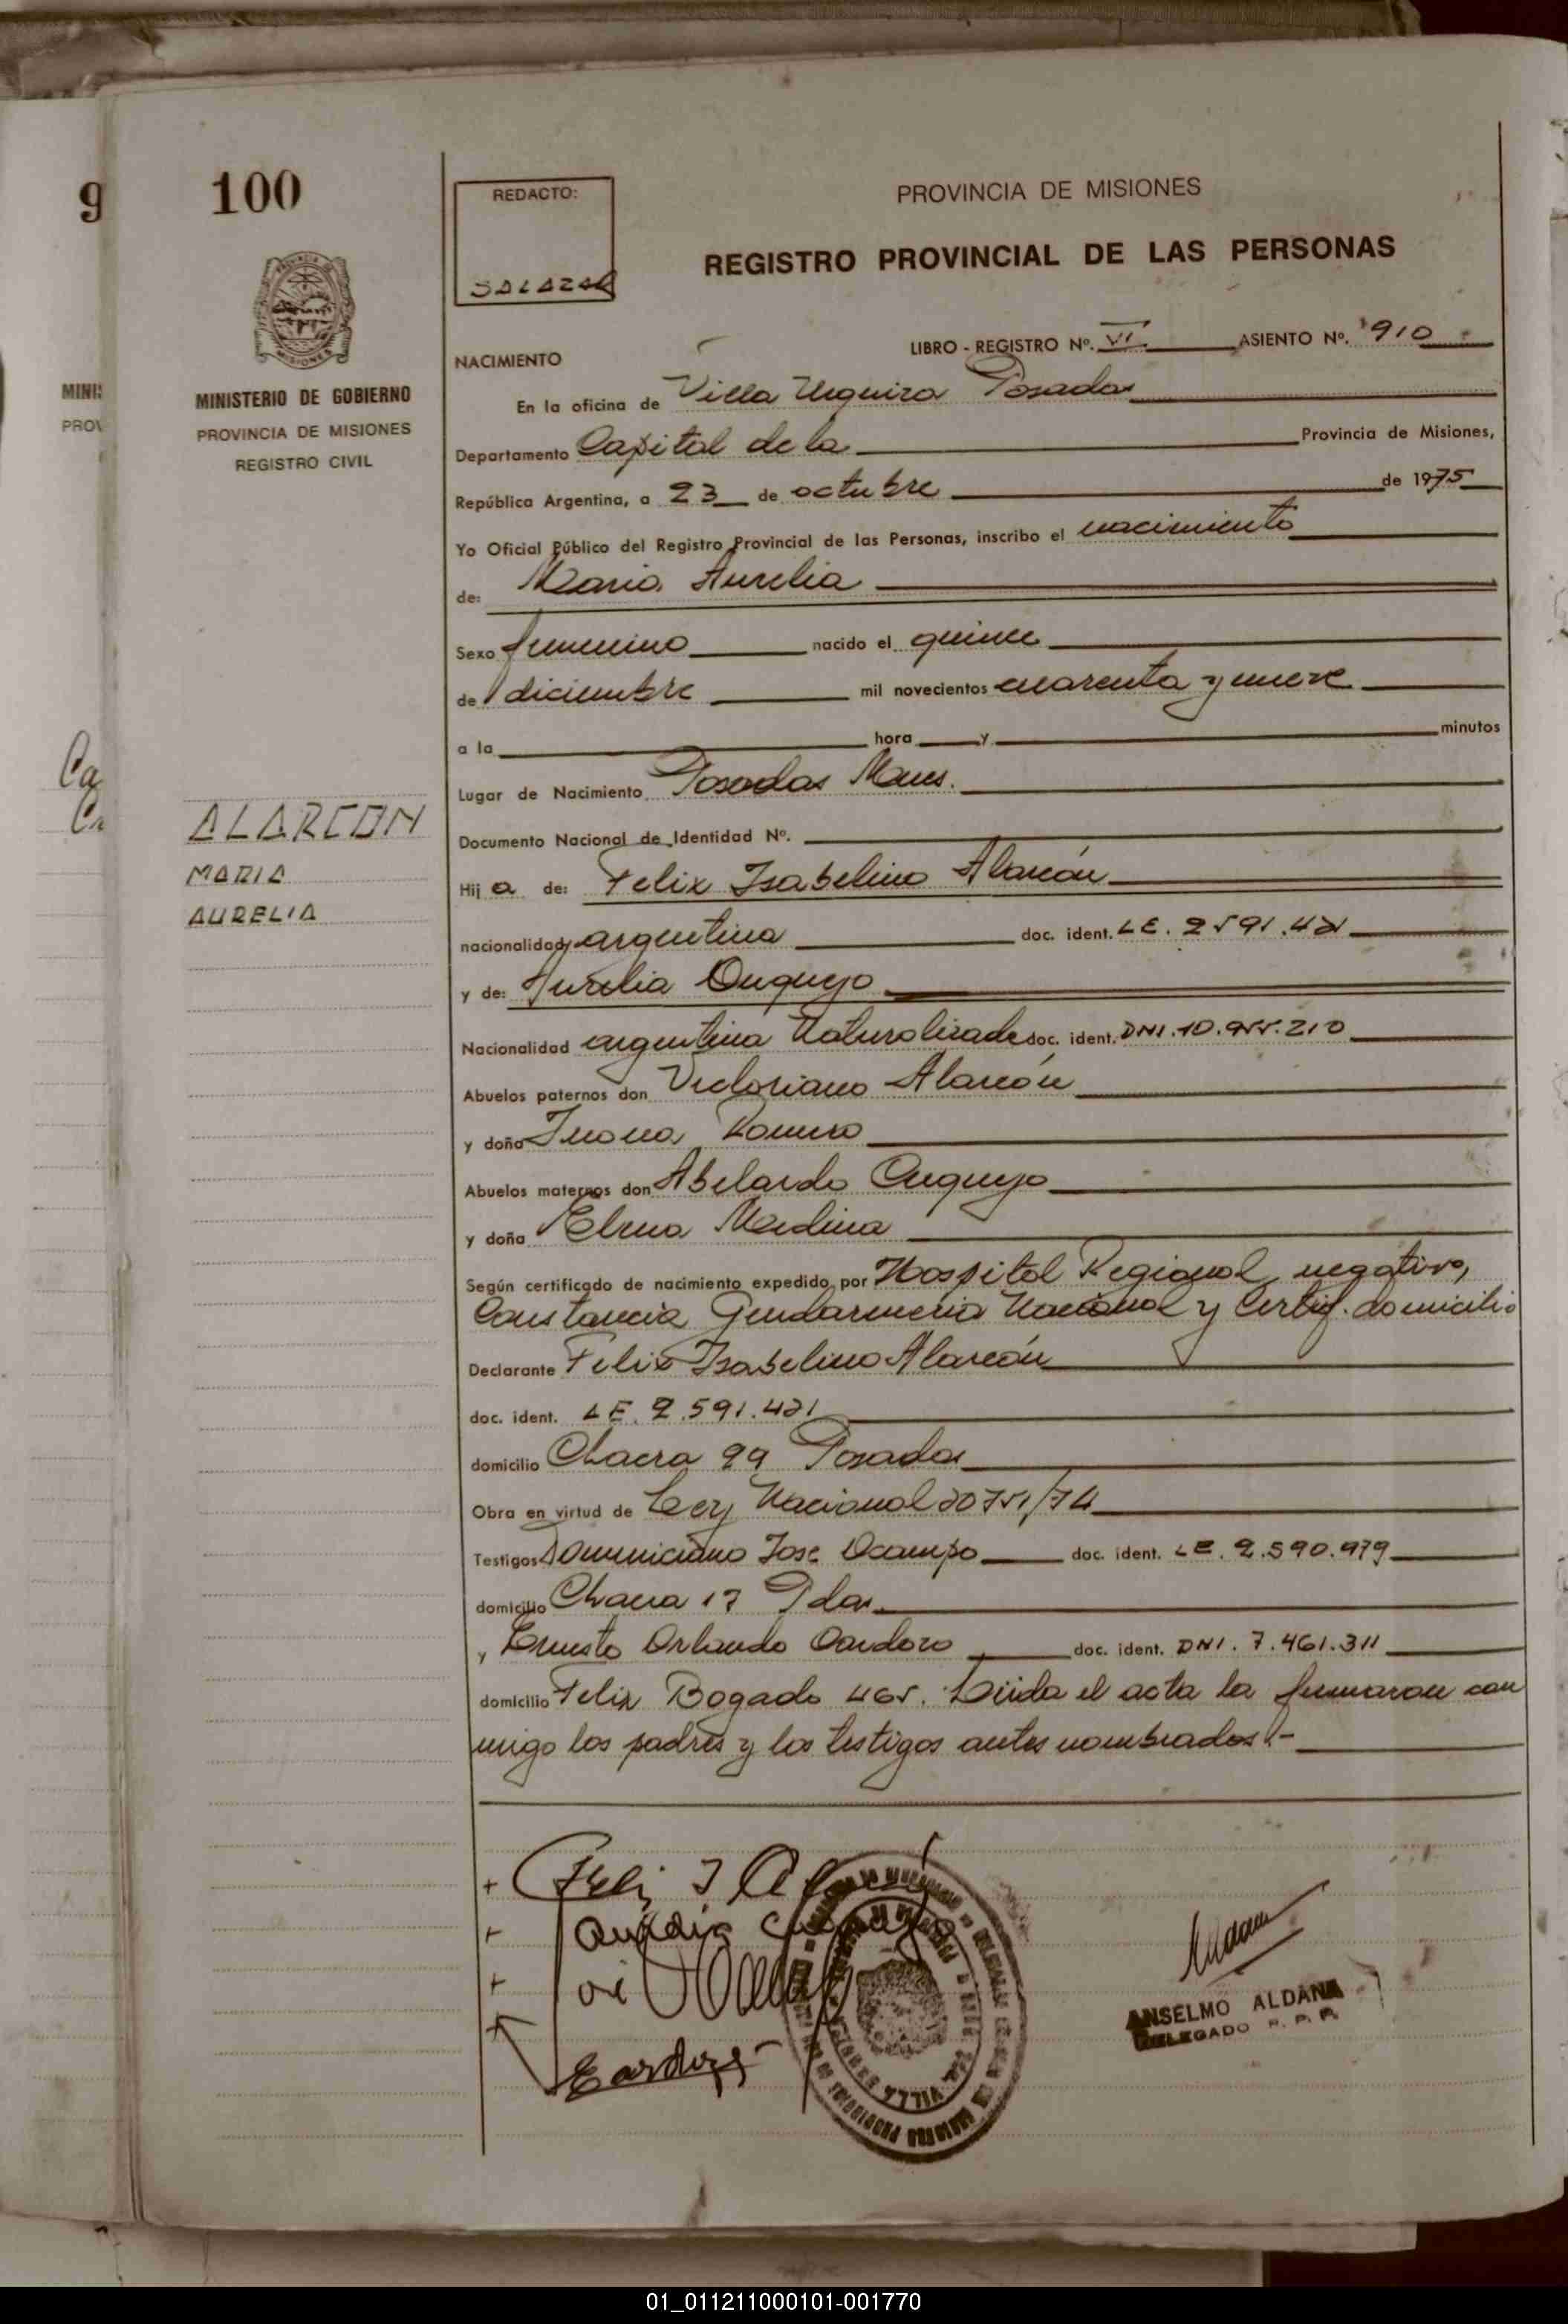 100
MINISTERIO DE GOBIERNO
PROVINCIA DE MISIONES
REGISTRO CIVIL
ALARCON
MARIA
AURELIA
REDACTO:
SALAZAR
PROVINCIA DE MISIONES
REGISTRO PROVINCIAL DE LAS PERSONAS
LIBRO - REGISTRO Nº. VI ASIENTO Nº. 910
NACIMIENTO
En la oficina de Villa Urquiza Posadas
Departamento Capital de la Provincia de Misiones,
República Argentina, a 23 de octubre de 1975
Yo Oficial Público del Registro Provincial de las Personas, inscribo el nacimiento
de: Maria Aurelia
Sexo femenino nacido el quince
de diciembre mil novecientos cuarenta y nueve
a la hora y minutos
Lugar de Nacimiento Posadas Mnes.
Documento Nacional de Identidad Nº.
Hij a de: Felix Isabelino Alarcón
nacionalidad argentina doc. ident. LE. 2591.421
y de: Aurelia
Nacionalidad argentina Naturalizada doc. ident. DNI. 10.955.210
Abuelos paternos don Victoriano Alarcón
y doña Juana Romero
Abuelos maternos don Abelardo
y doña Elena Medina
Según certificado de nacimiento expedido por Hospital Regional negativo,
Constancia Gendarmeria Nacional y Certif. domicilio
Declarante Felix Isabelino Alarcón
doc. ident. LE. 2.591.421
domicilio Chacra 99 Posadas
Obra en virtud de Ley Nacional 20751/74
Testigos Domiciano Jose Ocampo doc. ident. LE. 2.590.979
domicilio Chacra 17 Pdas.
y Ernesto Orlando doc. ident. DNI. 7.461.311
domicilio Felix Bogado 465. Leida el acta la firmaron con
migo los padres y los testigos antes nombrados.-
ANSELMO ALDANA
DELEGADO R. P. P.
01_011211000101-001770